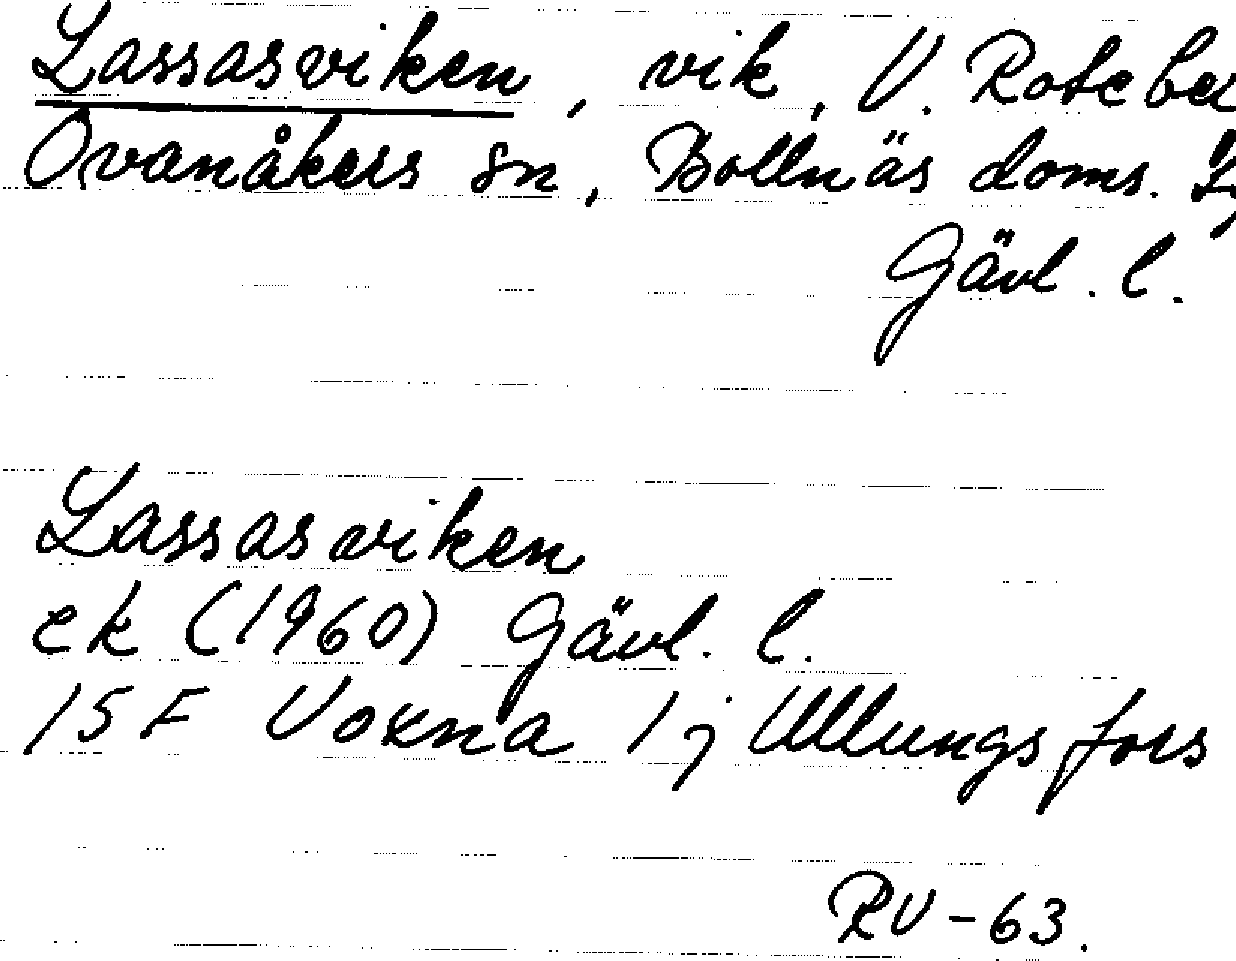 Lassasviken, vik, V. Roteber
Ovanåkers sn, Bollnäs doms.
Gävl. l.
Lassasviken
ek (1960) Gävl. l.
15 F Voxna 1 j Ullungsfors
RV-63.